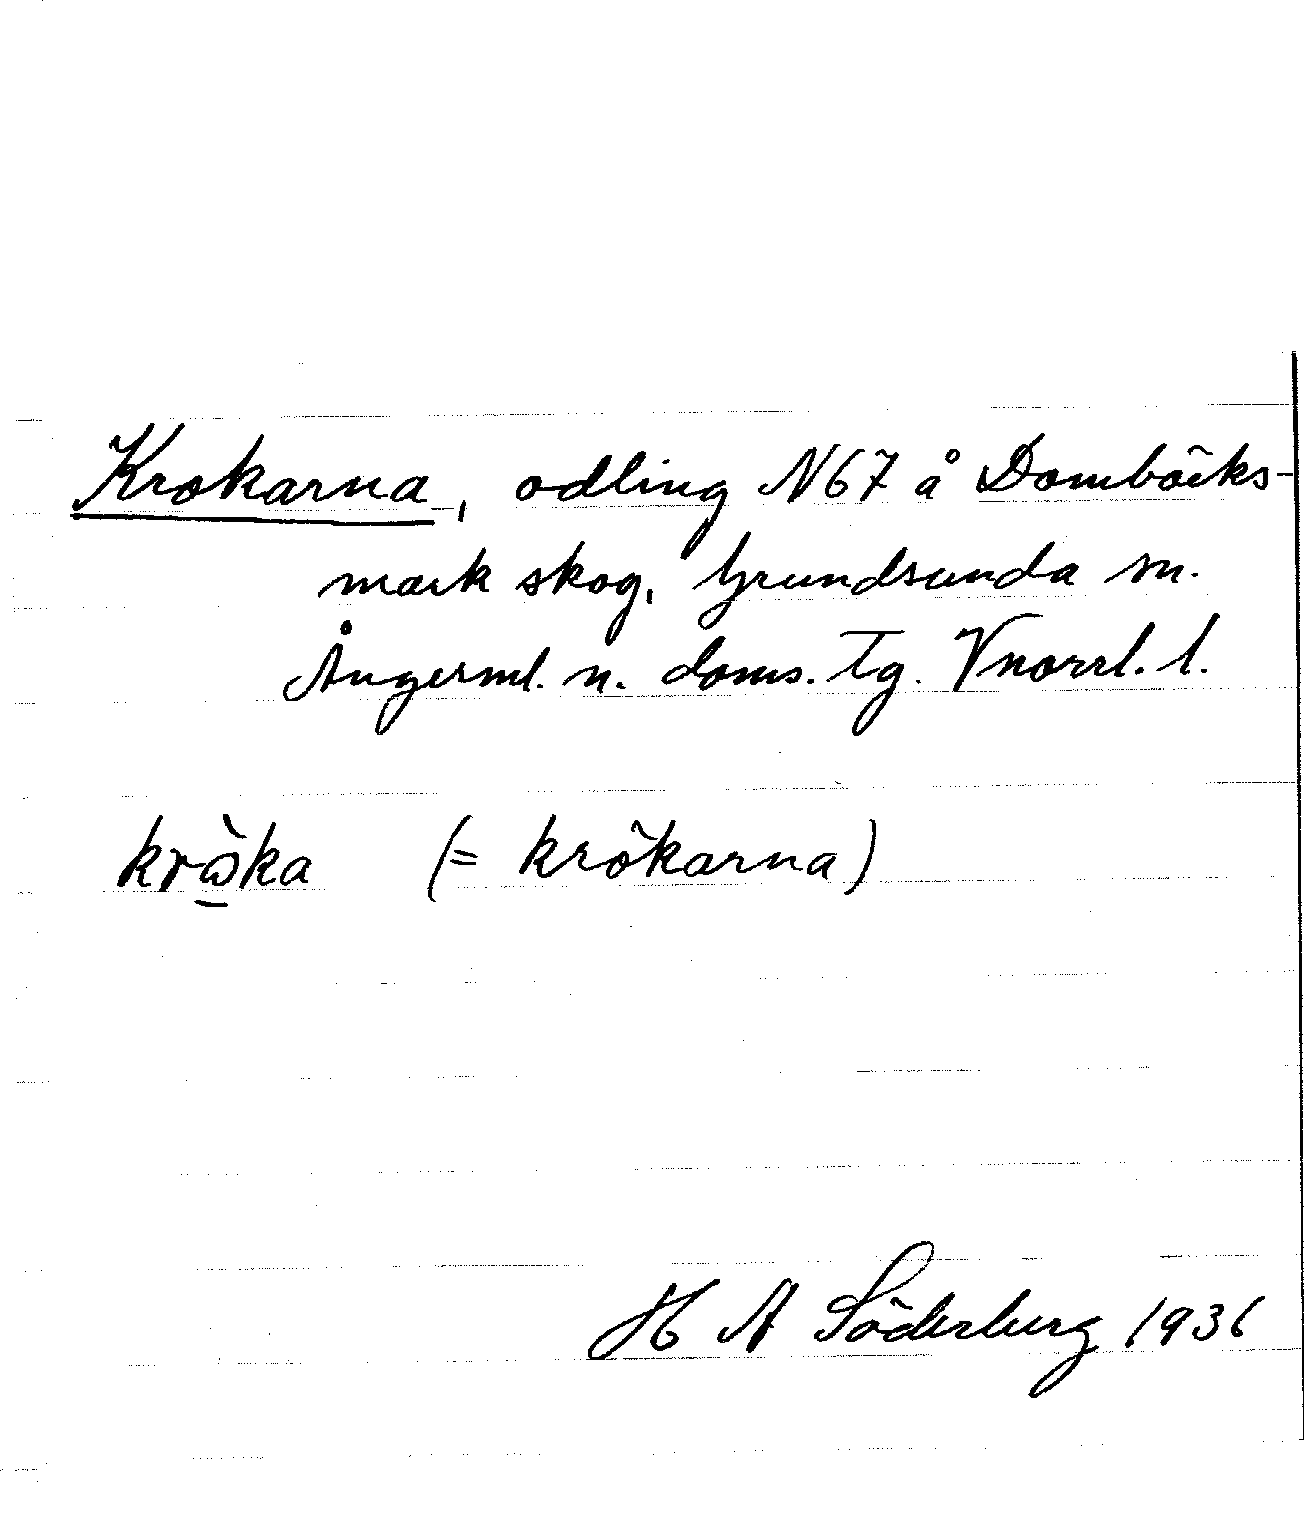 Krokarna, odling N67 å Dombäcks-
mark skog, Grundsunda sn.
Ångerml. n. doms. Tg. Vnorrl. l.
krɷ̀ka (= krökarna)
H A Söderberg 1936